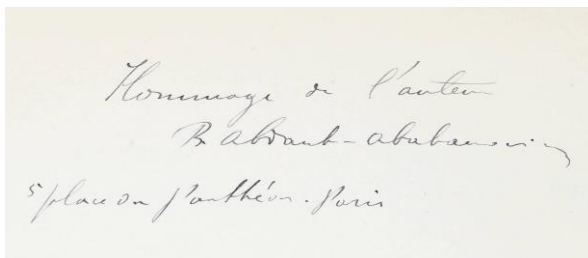 Hommage de l'auteur
Abdank-Abakanowicz
5 place du Panthéon. Paris